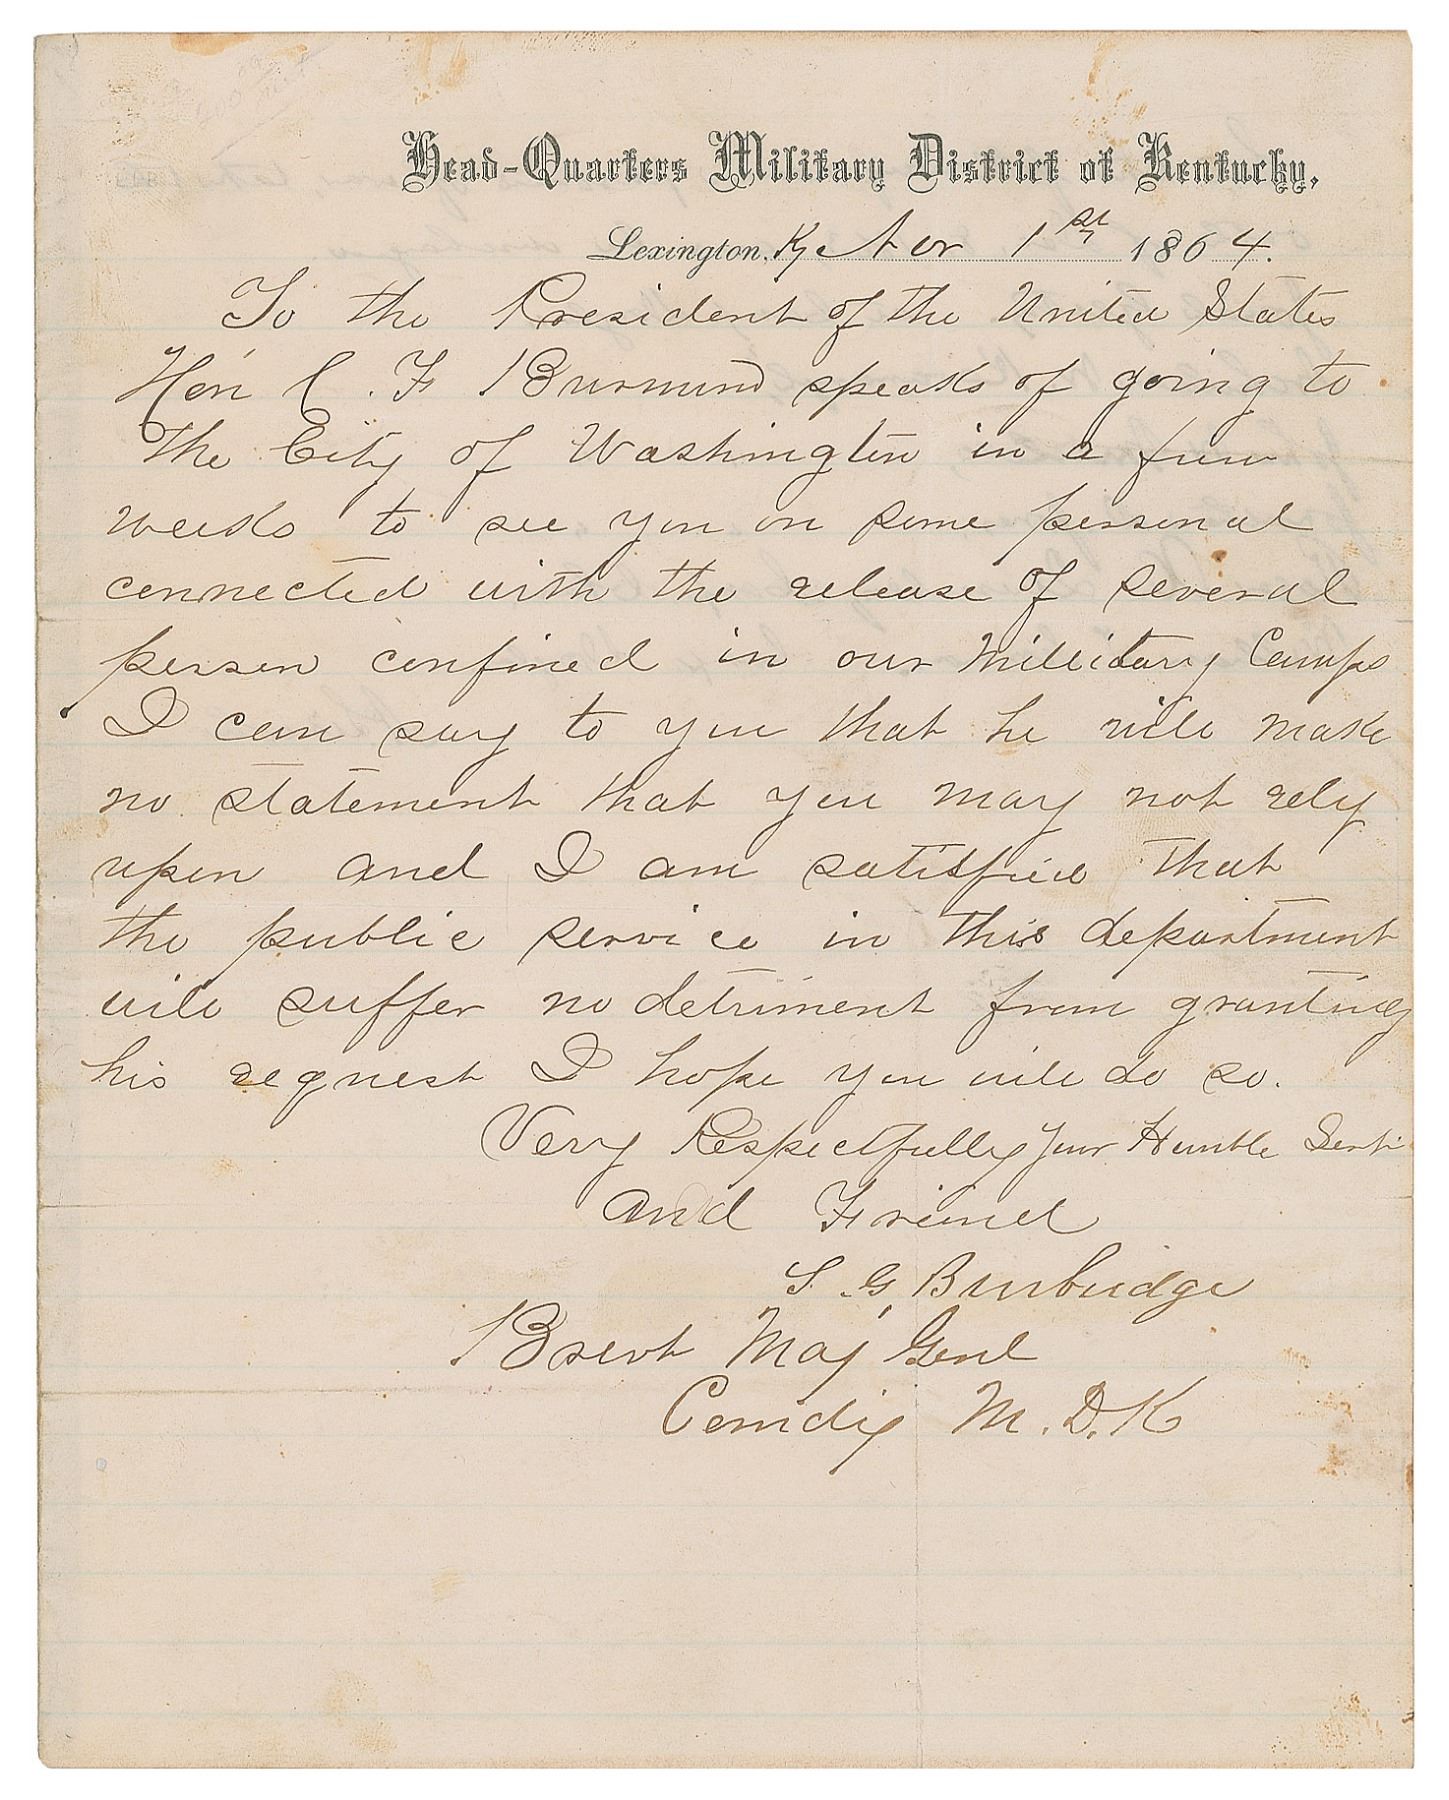 Head-Quarters Military District of Kentucky,
Lexington, Ky Nov 1st 1864.
To the President of the United States
Hon C. F Burnam speaks of going to
the City of Washington in a few
weeks to see you on some personal
connected with the release of several
person confined in our Millitary Camps
I can say to you that he will make
no statement that you may not rely
upon and I am satisfied that
the public service in this department
will suffer no detriment from granting
his request I hope you will do so.
Very Respectfully Your Humble Servt
and Friend
S. G. Burbridge
Brevt Maj Genl
Comdig M. D. K